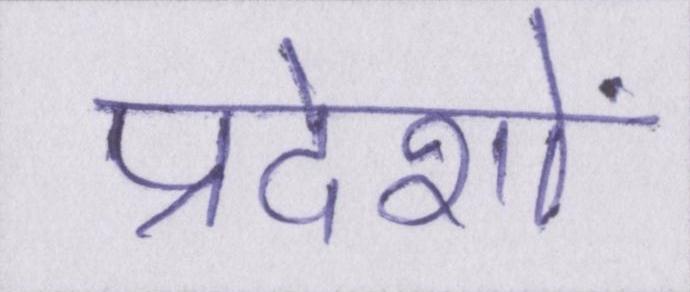 प्रदेशों